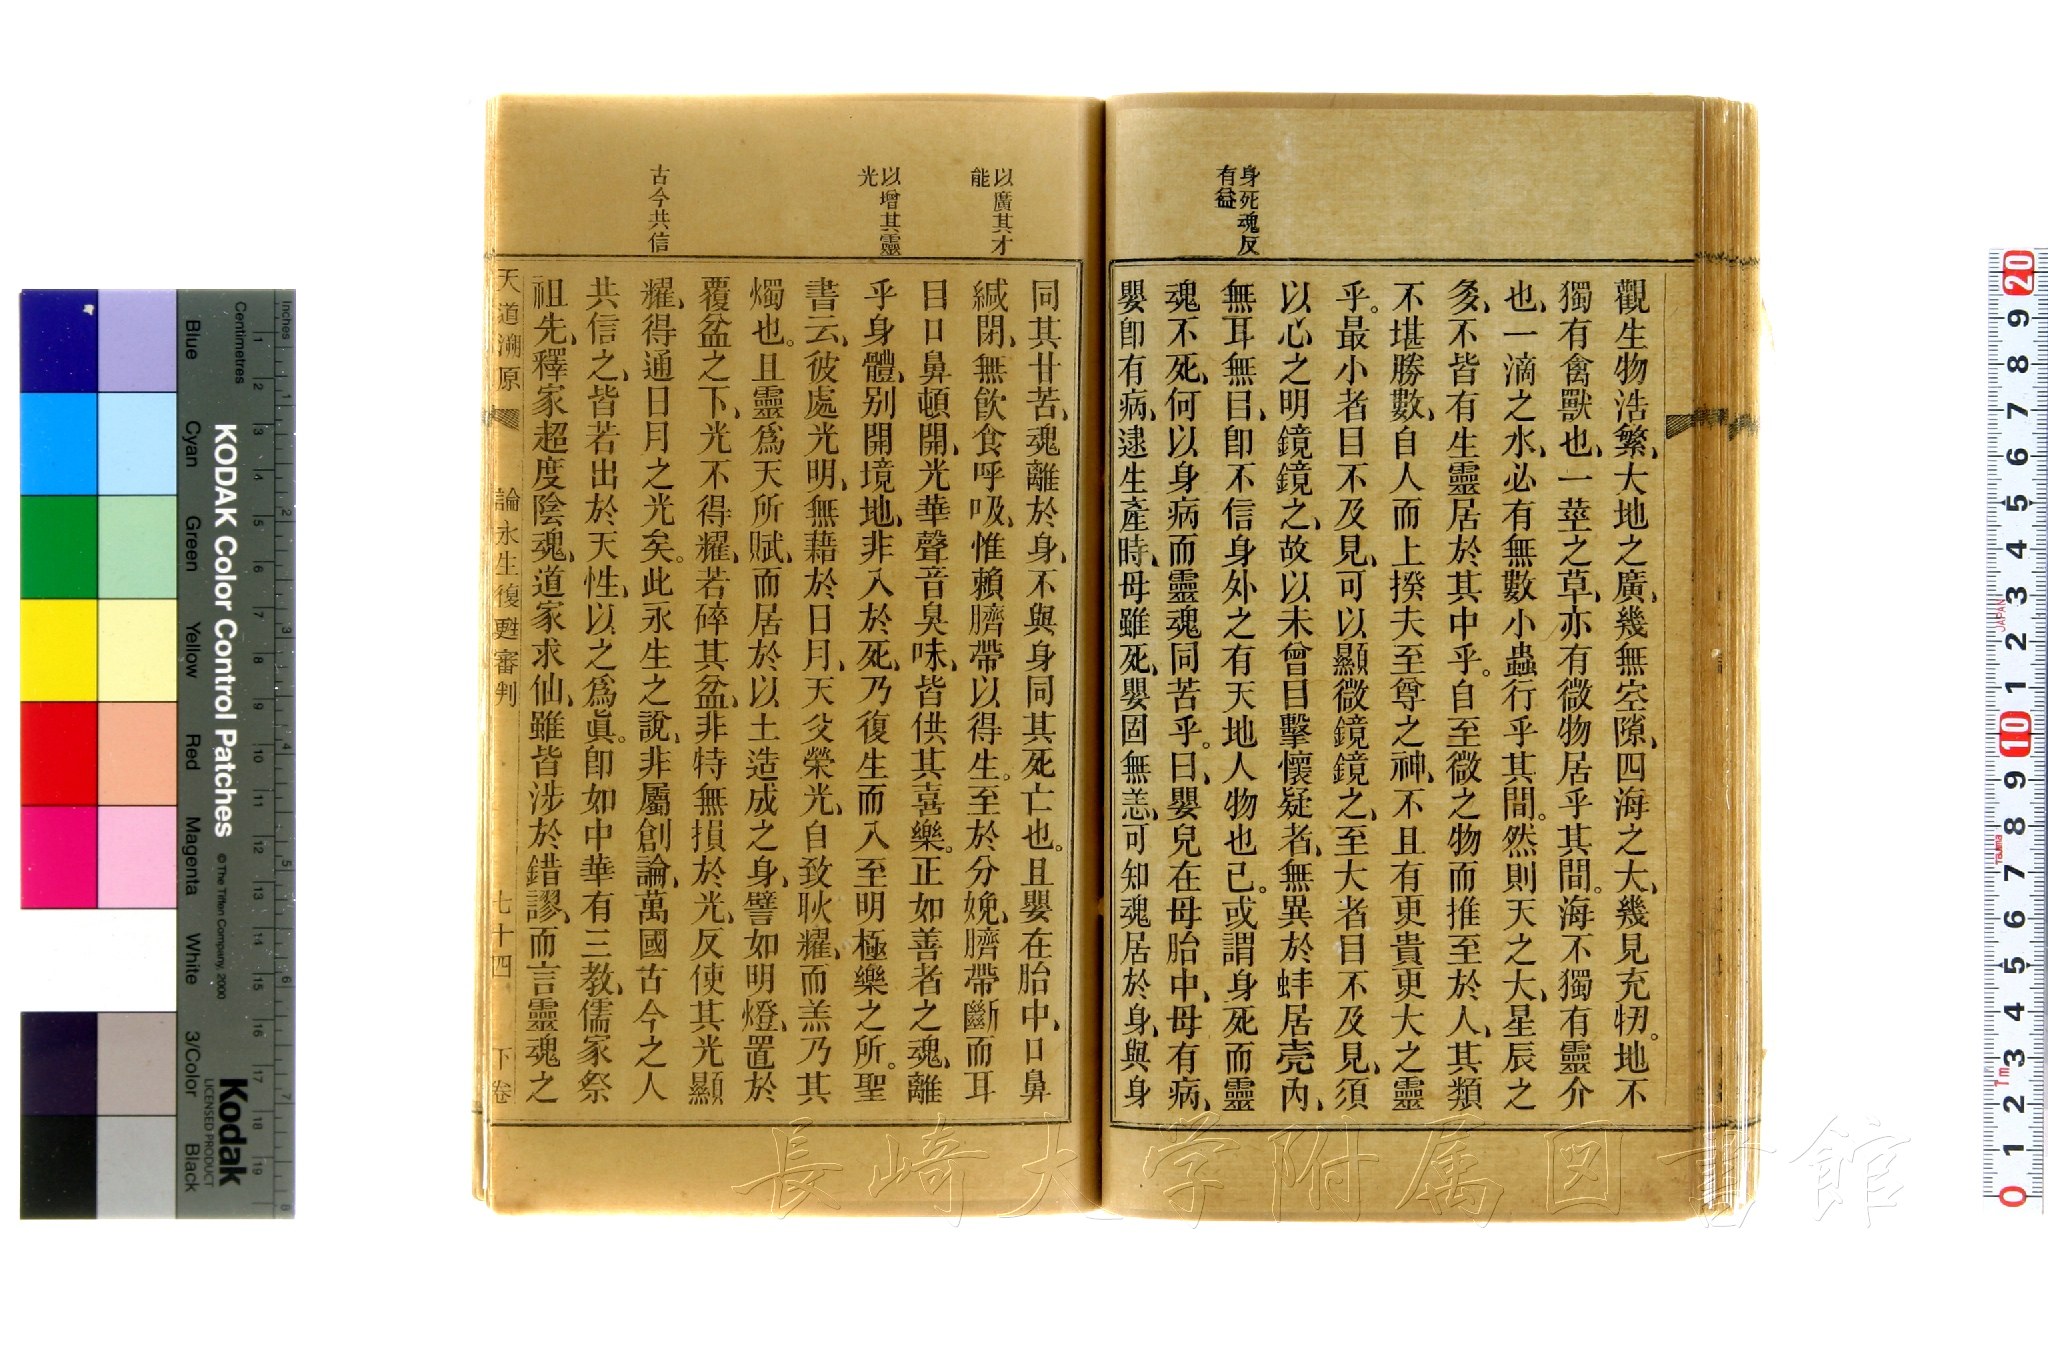 身死魂反
有益
觀生物浩繁、大地之廣、幾無空隙、四海之大、幾見充牣。地不
獨有禽獸也、一莖之草、亦有微物居乎其間。海不獨有靈介
也、一滴之水、必有無數小蟲行乎其間。然則天之大、星辰之
多、不皆有生靈居於其中乎。自至微之物而推至於人、其類
不堪勝數、自人而上揆夫至尊之神、不且有更貴更大之靈
乎。最小者目不及見、可以顯微鏡鏡之、至大者目不及見、須
以心之明鏡鏡之、故以未曾目擊懷疑者、無異於蚌居壳內、
無耳無目、卽不信身外之有天地人物也已。或謂身死而靈
魂不死、何以身病而靈魂同苦乎。曰、嬰兒在母胎中、母有病、
嬰卽有病、逮生產時、母雖死、嬰固無恙、可知魂居於身、與身
以廣其才
能
以增其靈
光
古今共信
同其甘苦、魂離於身、不與身同其死亡也。且嬰在胎中、口鼻
緘閉、無飮食呼吸、惟賴臍帶以得生。至於分娩、臍帶斷而耳
目口鼻頓開、光華聲音臭味、皆供其喜樂。正如善者之魂、離
乎身體、別開境地、非入於死、乃復生而入至明極樂之所。聖
書云、彼處光明、無藉於日月、天父榮光、自致耿耀、而羔乃其
燭也。且靈爲天所賦、而居於以土造成之身、譬如明燈、置於
覆盆之下、光不得耀、若碎其盆、非特無損於光、反使其光顯
耀、得通日月之光矣。此永生之說、非屬創論、萬國古今之人
共信之、皆若出於天性、以之爲眞。卽如中華有三教、儒家祭
祖先、釋家超度陰魂、道家求仙、雖皆涉於錯謬、而言靈魂之
天道溯原 論永生復甦審判 七十四 下卷
KODAK Color Control Patches © The Tiffen Company, 2000
Kodak
LICENSED PRODUCT
Inches
Centimetres
Blue Cyan Green Yellow Red Magenta White 3/Color Black
1 2 3 4 5 6 7 8 9 10 11 12 13 14 15 16 17 18 19
1 2 3 4 5 6 7 8
20 9 8 7 6 5 4 3 2 1 10 9 8 7 6 5 4 3 2 1 0
JAPAN
Tajima
Tm
長崎大学附属図書館